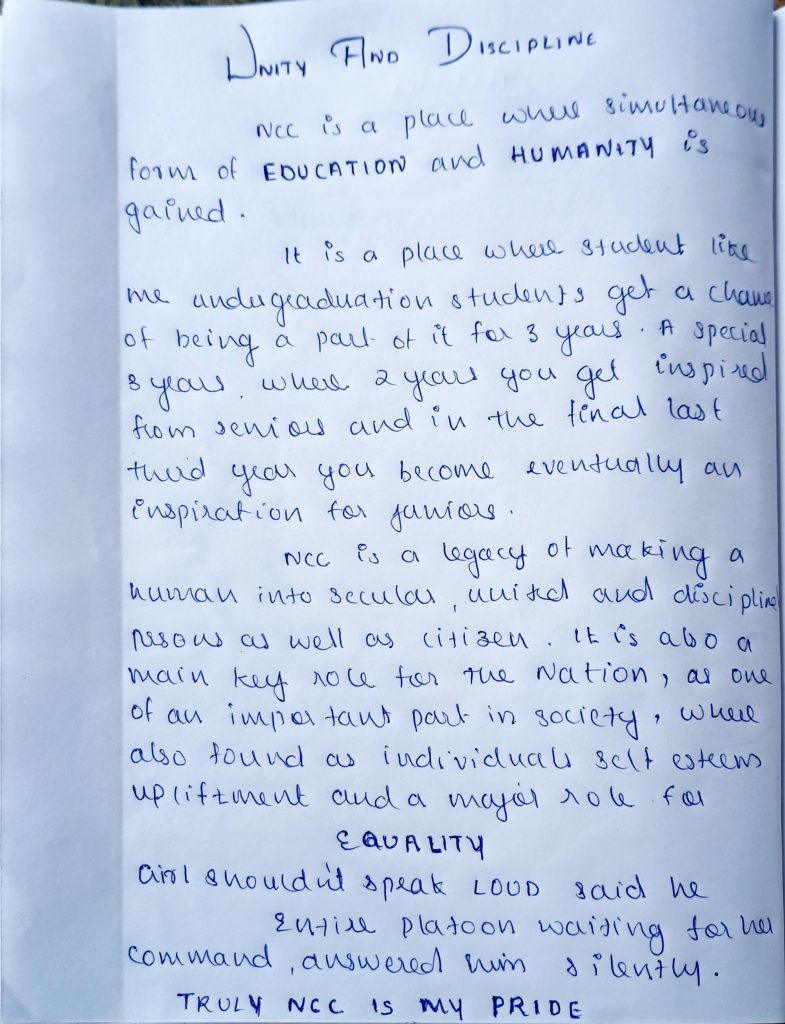 UNITY AND DISCIPLINE
NCC is a place where simultaneous
form of EDUCATION and HUMANITY is
gained.
It is a place where student like
me undergraduation students get a chance
of being a part of it for 3 years. A special
3 years, where 2 years you get inspired
from seniors and in the final last
third year you become eventually an
inspiration for juniors.
NCC is a legacy of making a
human into secular, united and discipline
as well as citizen. It is also a
main key role for the Nation, as one
of an important part in society, where
also found as individuals self esteem
upliftment and a major role for
EQUALITY
Girl shouldn't speak LOUD said he
Entire platoon waiting for her
command, answered him silently.
TRULY NCC IS MY PRIDE